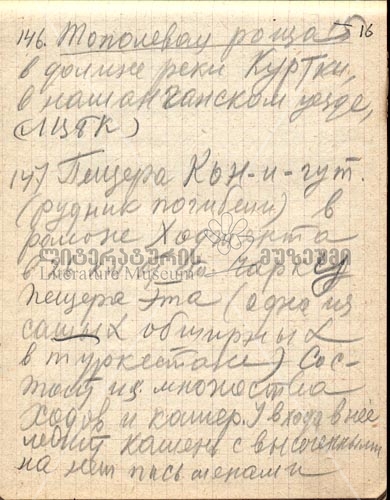 16
146. Тополевая роща
в долине реки Куртки,
в наманганском уезде,
(МЦПК)
147 Пещера Кон-и-гут.
(рудник погибели) в
районе
ლიტერატურის მუზეუმი
Literature Museum
пещера эта (одна из
самых обширных
в туркестане) Сос-
тоит из множества
Ходов и камер. У входа в нее
лежит камень с высеченными
на нем письменами